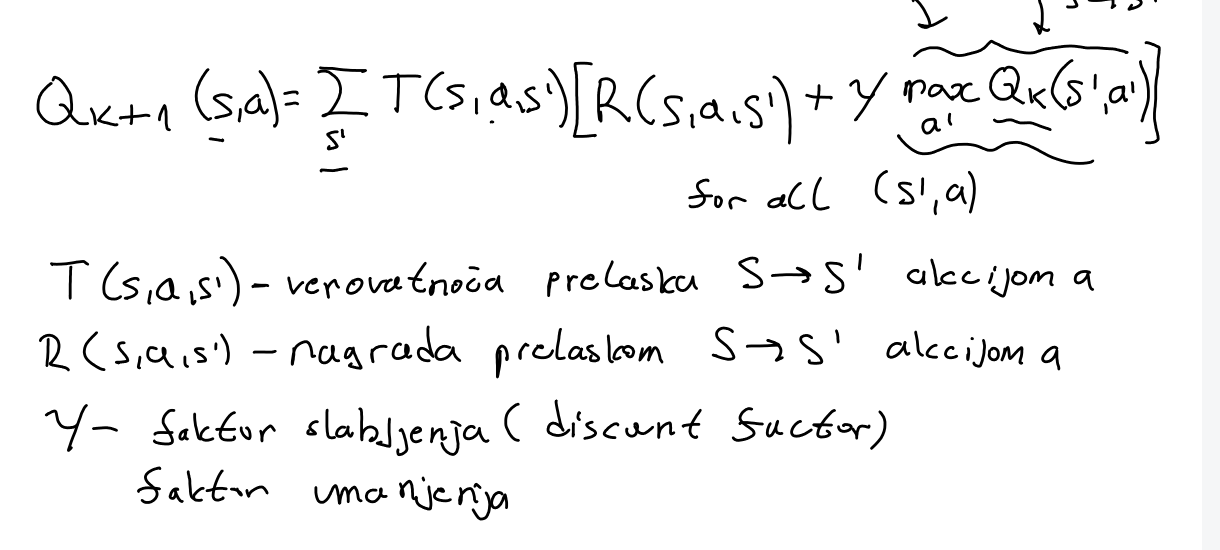 Q_{k+1} (s,a) = Σ_{s'} T(s,a,s') [R(s,a,s') + γ max_{a'} Q_k(s',a')]
for all (s',a)
T(s,a,s') - verovatnoća prelaska S → S' akcijom a
R(s,a,s') - nagrada prelaskom S → S' akcijom a
γ - faktor slabljenja ( discunt factor)
faktor umanjenja